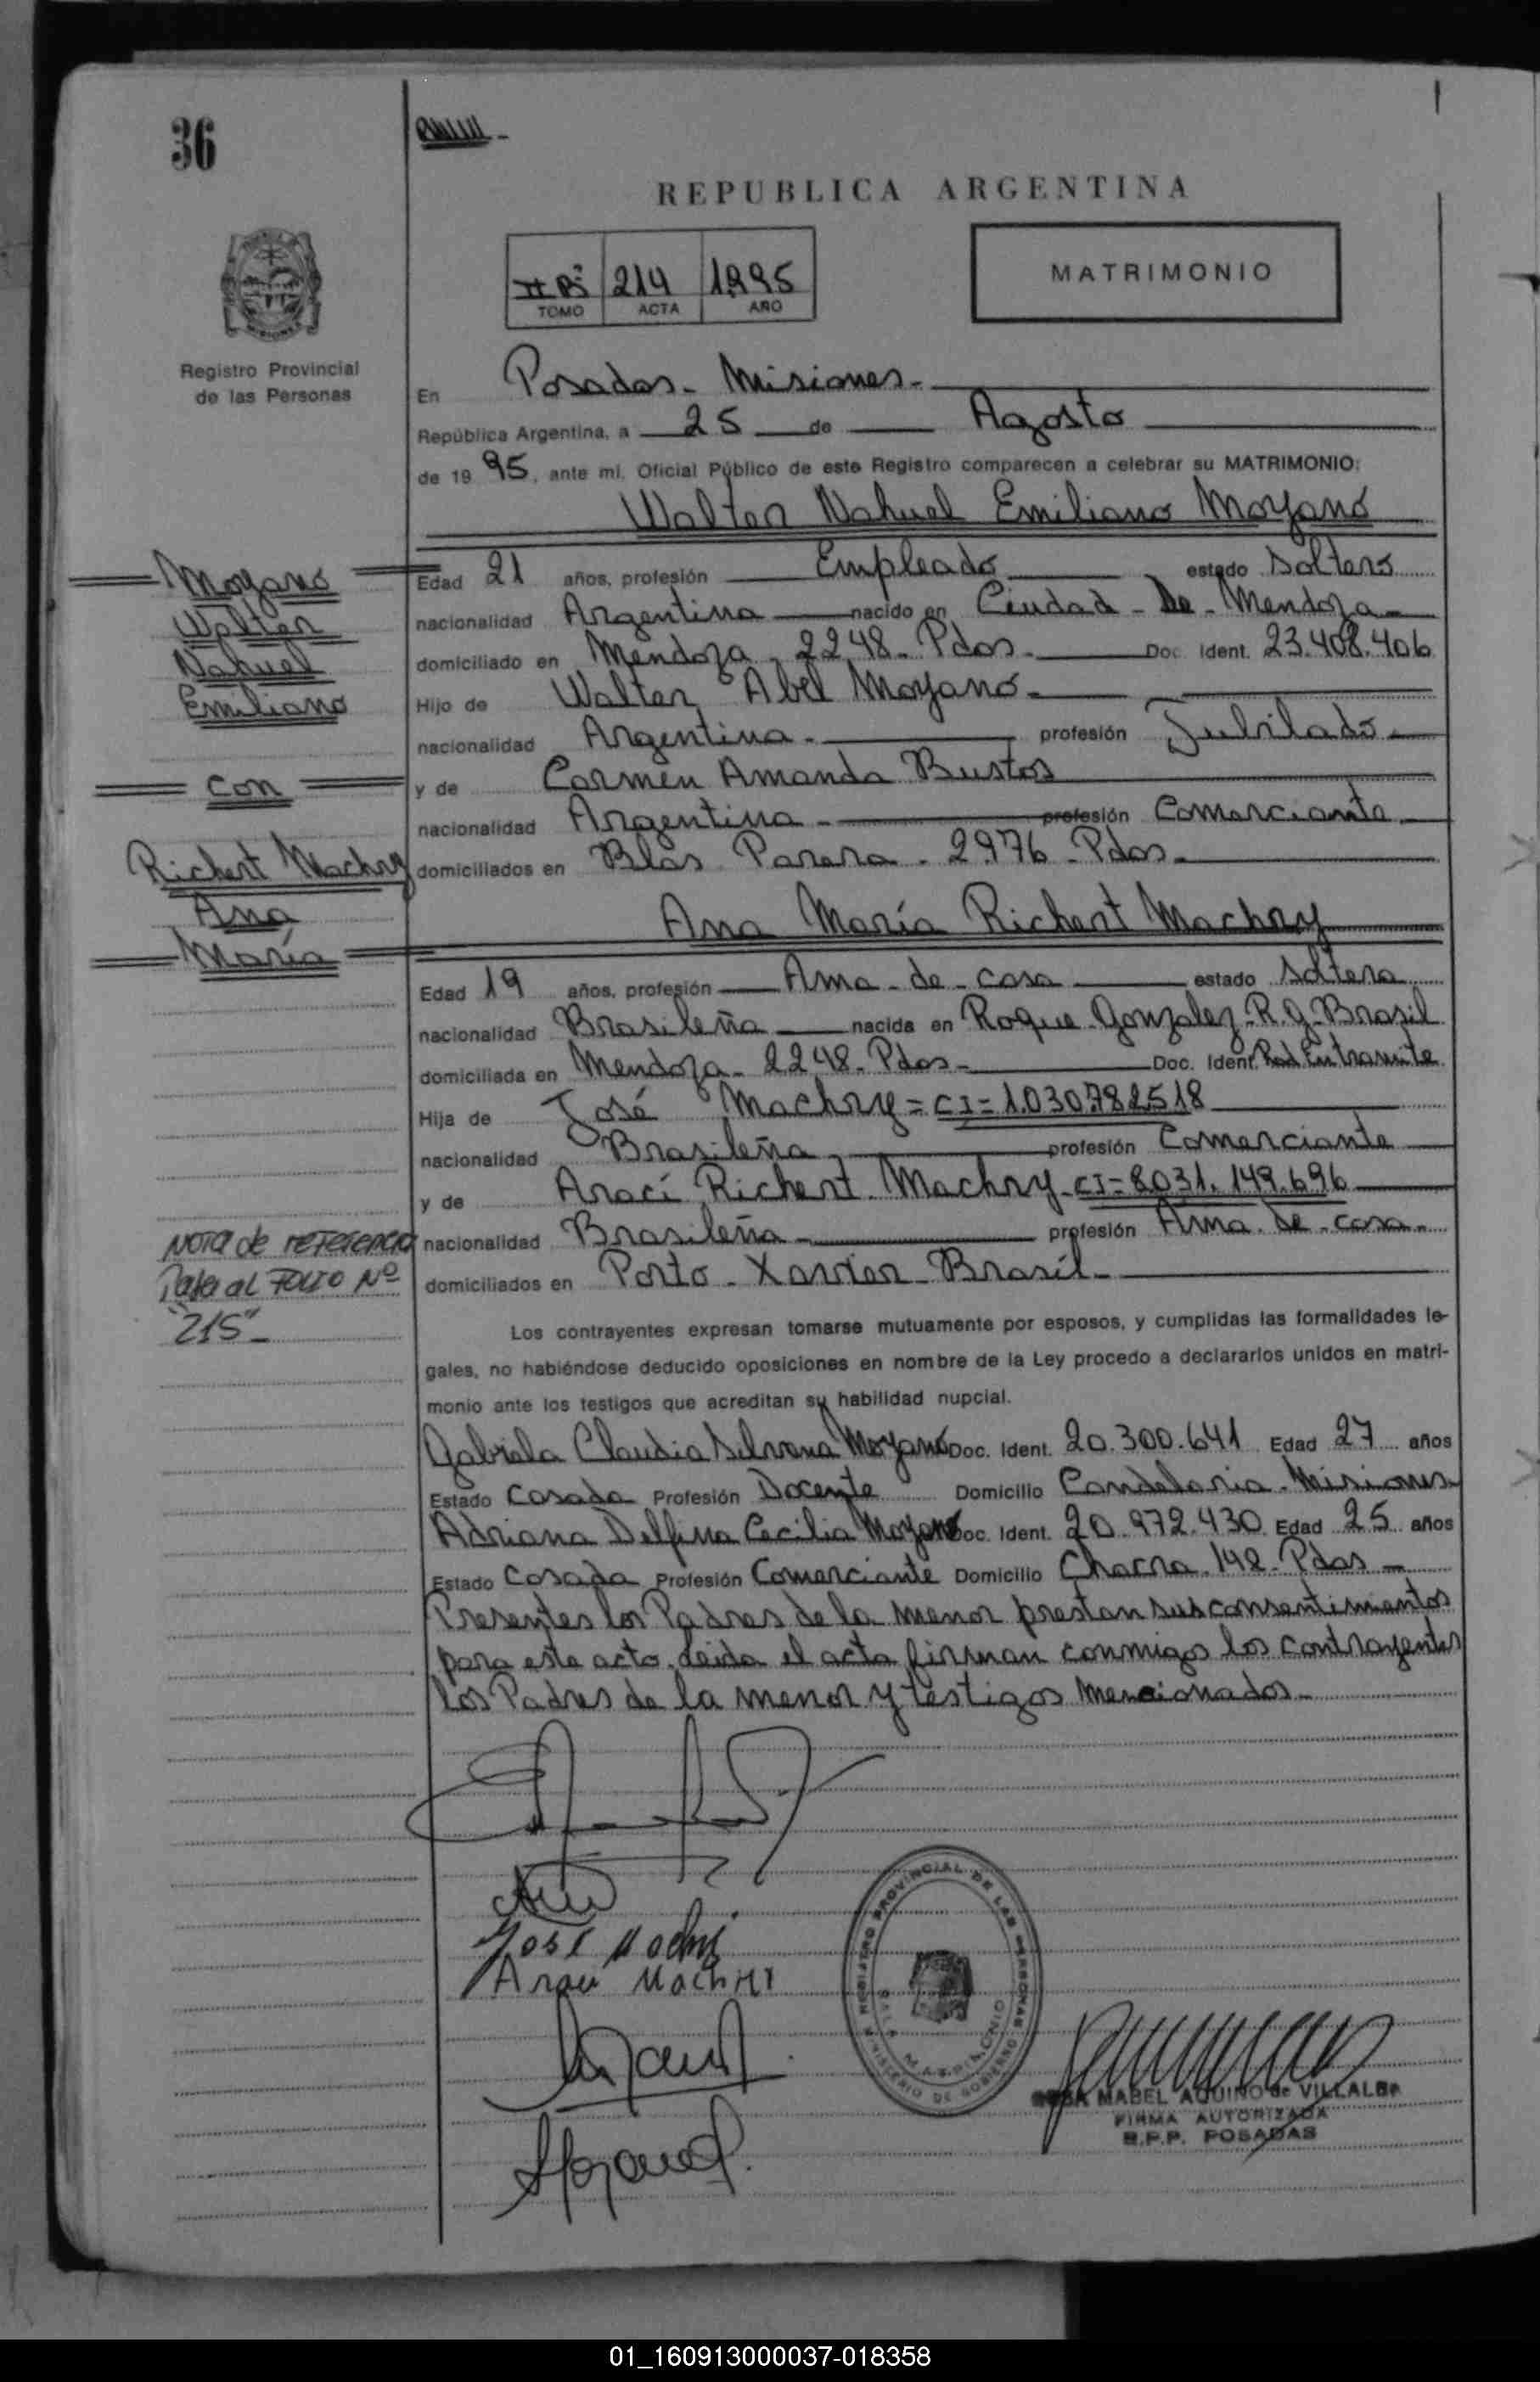 36
REPUBLICA ARGENTINA
II Bis 214 1995
TOMO ACTA AÑO
MATRIMONIO
Registro Provincial
de las Personas
En Posadas - Misiones -
República Argentina, a 25 de Agosto
de 19 95, ante mí, Oficial Público de este Registro comparecen a celebrar su MATRIMONIO:
Walter Nahuel Emiliano Moyano
Moyano
Walter
Nahuel
Emiliano
con
Richert Machry
Ana
María
Edad 21 años, profesión Empleado estado Soltero
nacionalidad Argentina nacido en Ciudad - De - Mendoza -
domiciliado en Mendoza 2248 - Pdas - Doc. Ident. 23.408.406
Hijo de Walter Abel Moyano -
nacionalidad Argentina - profesión Jubilado -
y de Carmen Amanda Bustos
nacionalidad Argentina - profesión Comerciante
domiciliados en Blas Parera - 2976 - Pdas -
Ana María Richert Machry
Edad 19 años, profesión Ama - de - casa estado Soltera
nacionalidad Brasileña nacida en Roque Gonzalez - R.G - Brasil
domiciliada en Mendoza - 2248 - Pdas - Doc. Ident. Rad. En tramite
Hija de José Machry = CI = 1.030.782518
nacionalidad Brasileña profesión Comerciante
y de Aracî Richert Machry - CI = 8031.149.696
nacionalidad Brasileña - profesión Ama - de - casa -
domiciliados en Porto - Xavier - Brasil -
NOTA de referencia
Pasa al FOLIO Nº
"215"-
Los contrayentes expresan tomarse mutuamente por esposos, y cumplidas las formalidades le-
gales, no habiéndose deducido oposiciones en nombre de la Ley procedo a declararlos unidos en matri-
monio ante los testigos que acreditan su habilidad nupcial.
Gabriela Claudia Silvana Moyano Doc. Ident. 20.300.641 Edad 27 años
Estado Casada Profesión Docente Domicilio Candelaria - Misiones -
Adriana Delfina Cecilia Moyano Doc. Ident. 20.972.430 Edad 25 años
Estado Casada Profesión Comerciante Domicilio Chacra 142 - Pdas -
Presentes los Padres de la menor prestan sus consentimientos
para este acto. Leida el acta firman conmigo los contrayentes
los Padres de la menor y testigos mencionados -
José Machry
Araci Machry
REGISTRO PROVINCIAL DE LAS PERSONAS
MINISTERIO DE GOBIERNO
SALA MATRIMONIO
MABEL AQUINO de VILLALBA
FIRMA AUTORIZADA
R.P.P. POSADAS
01_160913000037-018358